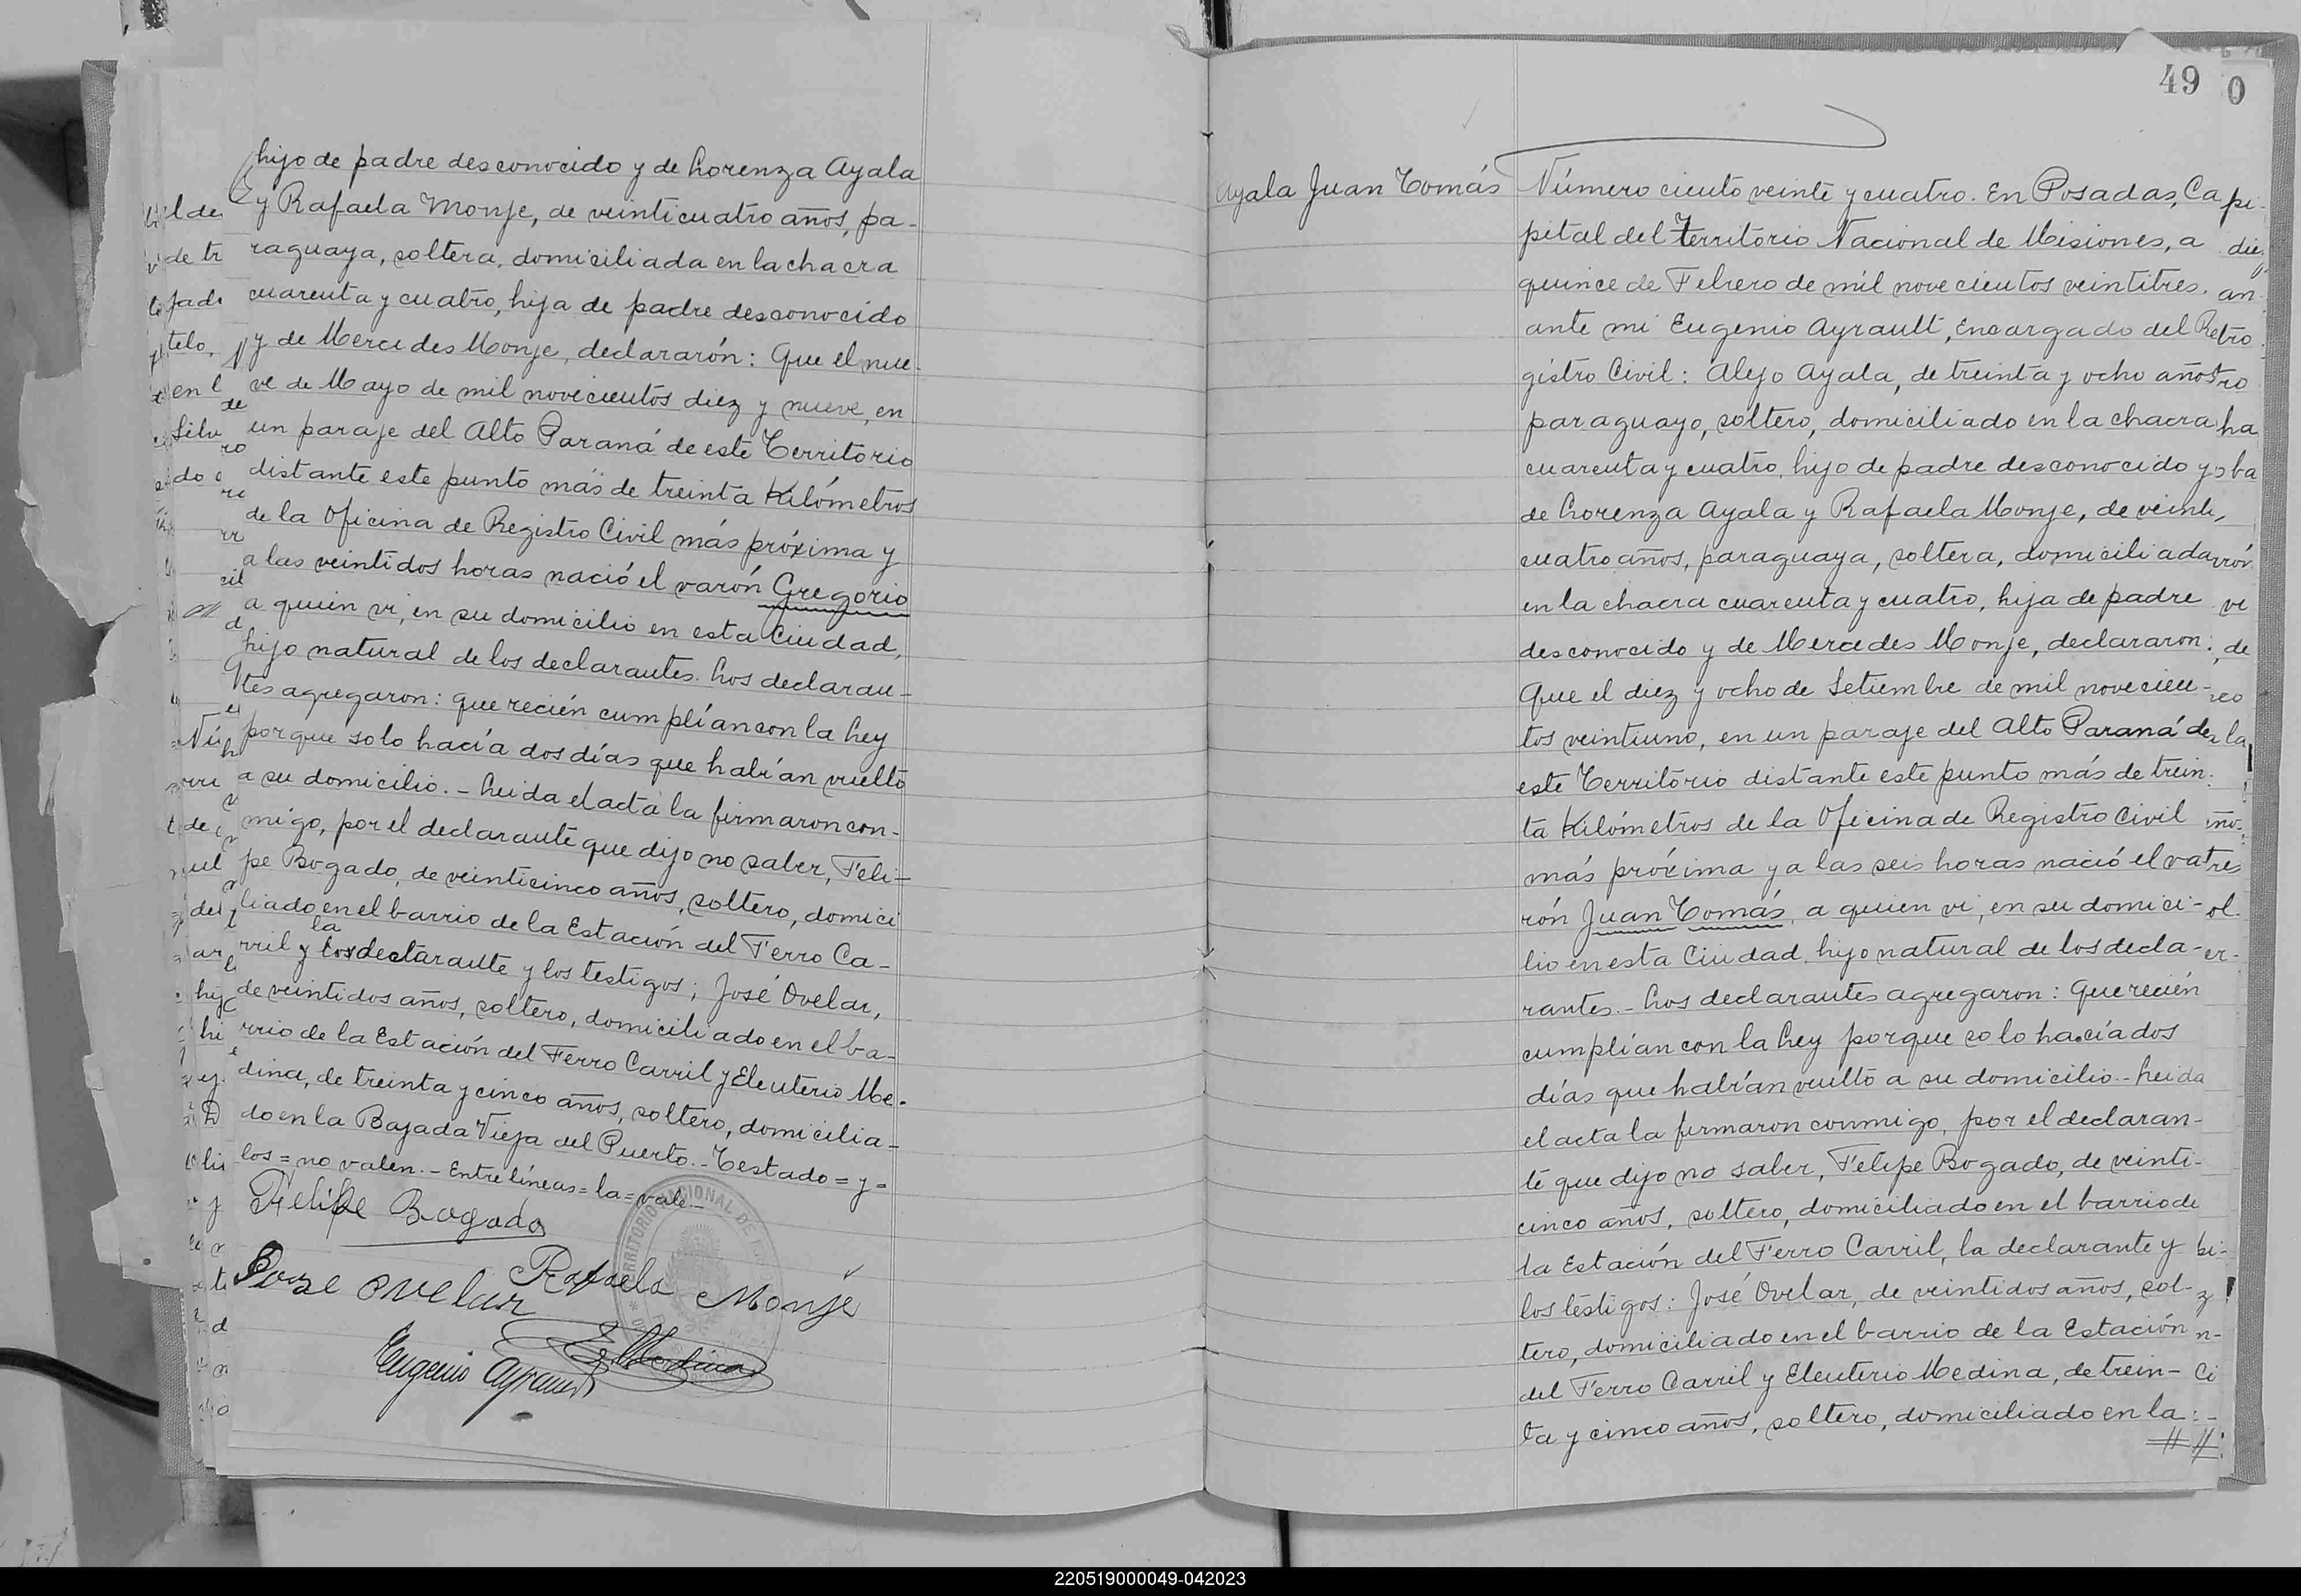 hijo de padre desconocido y de Lorenza Ayala
y Rafaela Monje, de veinticuatro años, pa-
raguaya, soltera, domiciliada en la chacra
cuarenta y cuatro, hija de padre desconocido
y de Mercedes Monje, declararón: Que el nue-
ve de Mayo de mil novecientos diez y nueve, en
un paraje del Alto Paraná de este Territorio
distante este punto más de treinta Kilómetros
de la Oficina de Registro Civil más próxima y
a las veintidos horas nació el varón Gregorio
a quien vi, en su domicilio en esta Ciudad,
hijo natural de los declarantes. Los declaran-
tes agregaron: que recién cumplían con la Ley
porque solo hacía dos días que habían vuelto
a su domicilio. - Leida el acta la firmaron con-
migo, por el declarante que dijo no saber, Feli-
pe Bogado, de veinticinco años, soltero, domici
liado en el barrio de la Estación del Ferro Ca-
la
rril y los declarante y los testigos; José Ovelar,
de veintidos años, soltero, domiciliado en el ba-
rrio de la Estación del Ferro Carril y Eleuterio Me-
dina, de treinta y cinco años, soltero, domicilia-
do en la Bajada Vieja del Puerto. - Testado = y =
los = no valen. - Entre líneas = la = vale -
Felipe Bogado
Rafaela Monje
Jose Ovelar
E. Medina
Eugenio Ayrault
49
0
Ayala Juan Tomás
Número ciento veinte y cuatro. En Posadas, Ca
pital del Territorio Nacional de Misiones, a
quince de Febrero de mil novecientos veintitres.
ante mi Eugenio Ayrault, Encargado del Re
gistro Civil: Alejo Ayala, de treinta y ocho años
paraguayo, soltero, domiciliado en la chacra
cuarenta y cuatro, hijo de padre desconocido y
de Lorenza Ayala y Rafaela Monje, de veinti,
cuatro años, paraguaya, soltera, domiciliada
en la chacra cuarenta y cuatro, hija de padre
desconocido y de Mercedes Monje, declararon:
Que el diez y ocho de Setiembre de mil novecien-
tos veintiuno, en un paraje del Alto Paraná de
este Territorio distante este punto más de trein-
ta Kilómetros de la Oficina de Registro Civil
más próxima y a las seis horas nació el va
rón Juan Tomás, a quien vi, en su domici-
lio en esta Ciudad, hijo natural de los decla-
rantes. - Los declarantes agregaron: Que recién
cumplían con la Ley porque solo hacía dos
días que habían vuelto a su domicilio. - Leida
el acta la firmaron conmigo, por el declaran-
te que dijo no saber, Felipe Bogado, de veinti-
cinco años, soltero, domiciliado en el barrio de
la Estación del Ferro Carril, la declarante y
los testigos: José Ovelar, de veintidos años, sol-
tero, domiciliado en el barrio de la Estación
del Ferro Carril y Eleuterio Medina, de trein-
ta y cinco años, soltero, domiciliado en la
220519000049-042023